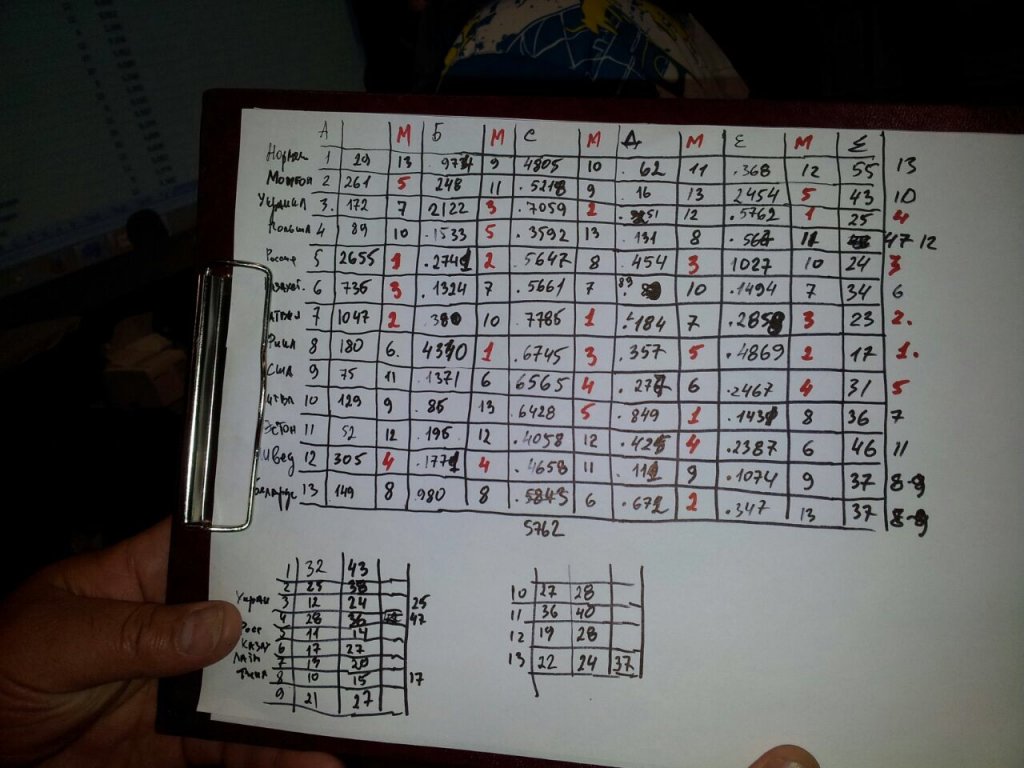 А М Б М С М Д М Е М Σ
1 29 13 .973 9 4805 10 62 11 .368 12 55 13
2 261 5 248 11 .5218 9 16 13 2454 5 43 10
3. 172 7 2122 3 .7059 2 51 12 .5762 1 25 4
4 89 10 .1533 5 .3592 13 131 8 .567 11 47 12
5 2655 1 .2741 2 .5647 8 454 3 1027 10 24 3
6 736 3 .1324 7 .5661 7 89 10 .1494 7 34 6
7 1047 2 10 7785 1 184 7 .2859 3 23 2.
Финл 8 180 6. 4370 1 .6745 3 .357 5 .4869 2 17 1.
США 9 75 11 .1371 6 6565 4 .277 6 .2467 4 31 5
10 129 9 .85 13 6428 5 .849 1 .1431 8 36 7
Эстон 11 52 12 .195 12 .4058 12 .425 4 .2387 6 46 11
12 305 4 .1771 4 .4658 11 .111 9 .1074 9 37 8-9
13 149 8 980 8 .5843 6 .672 2 .347 13 37 8-9
5762
1 32 43
2 25 38
3 12 24 25
4 28 36 47
5 11 14
Казах 6 17 27
7 13 20
8 10 15 17
9 21 27
10 27 28
11 36 40
12 19 28
13 22 24 37